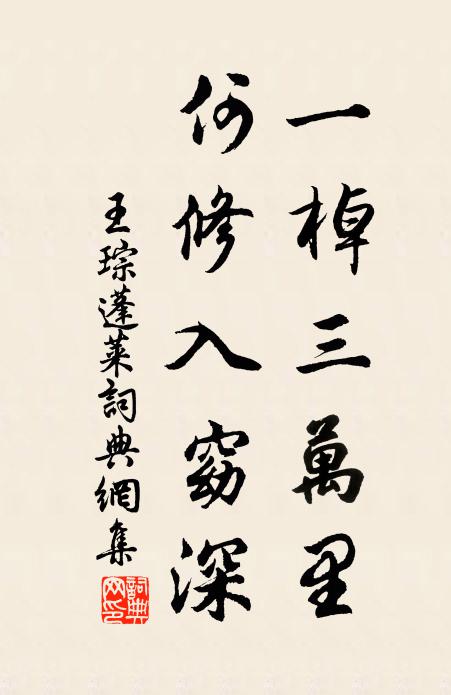 一棹三萬里
何修入窈深
王琮蓬萊詞典網集
詞典網印